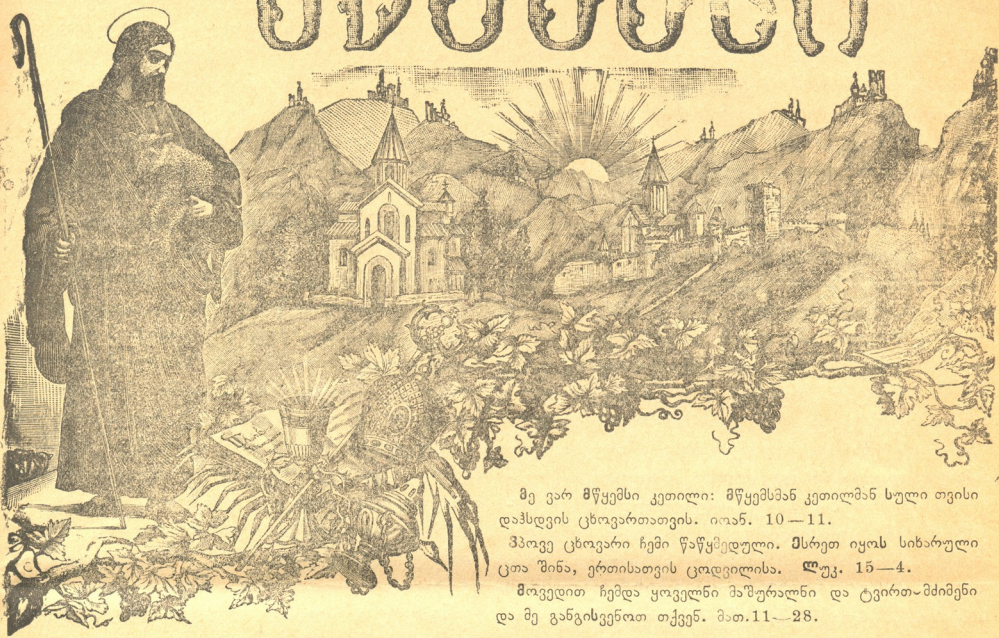 მე ვარ მწყემსი კეთილი: მწყემსმან კეთილმან სული თვისი
დაჰსდვის ცხოვართათვის. იოან. 10—11.
ვპოვე ცხოვარი ჩემი წაწყმედული. ესრეთ იყოს სიხარული
ცთა შინა, ერთისათვის ცოდვილისა. ლუკ. 15—4.
მოვედით ჩემდა ყოველნი მაშურალნი და ტვირთ-მძიმენი
და მე განგისვენოთ თქვენ. მათ.11—28.